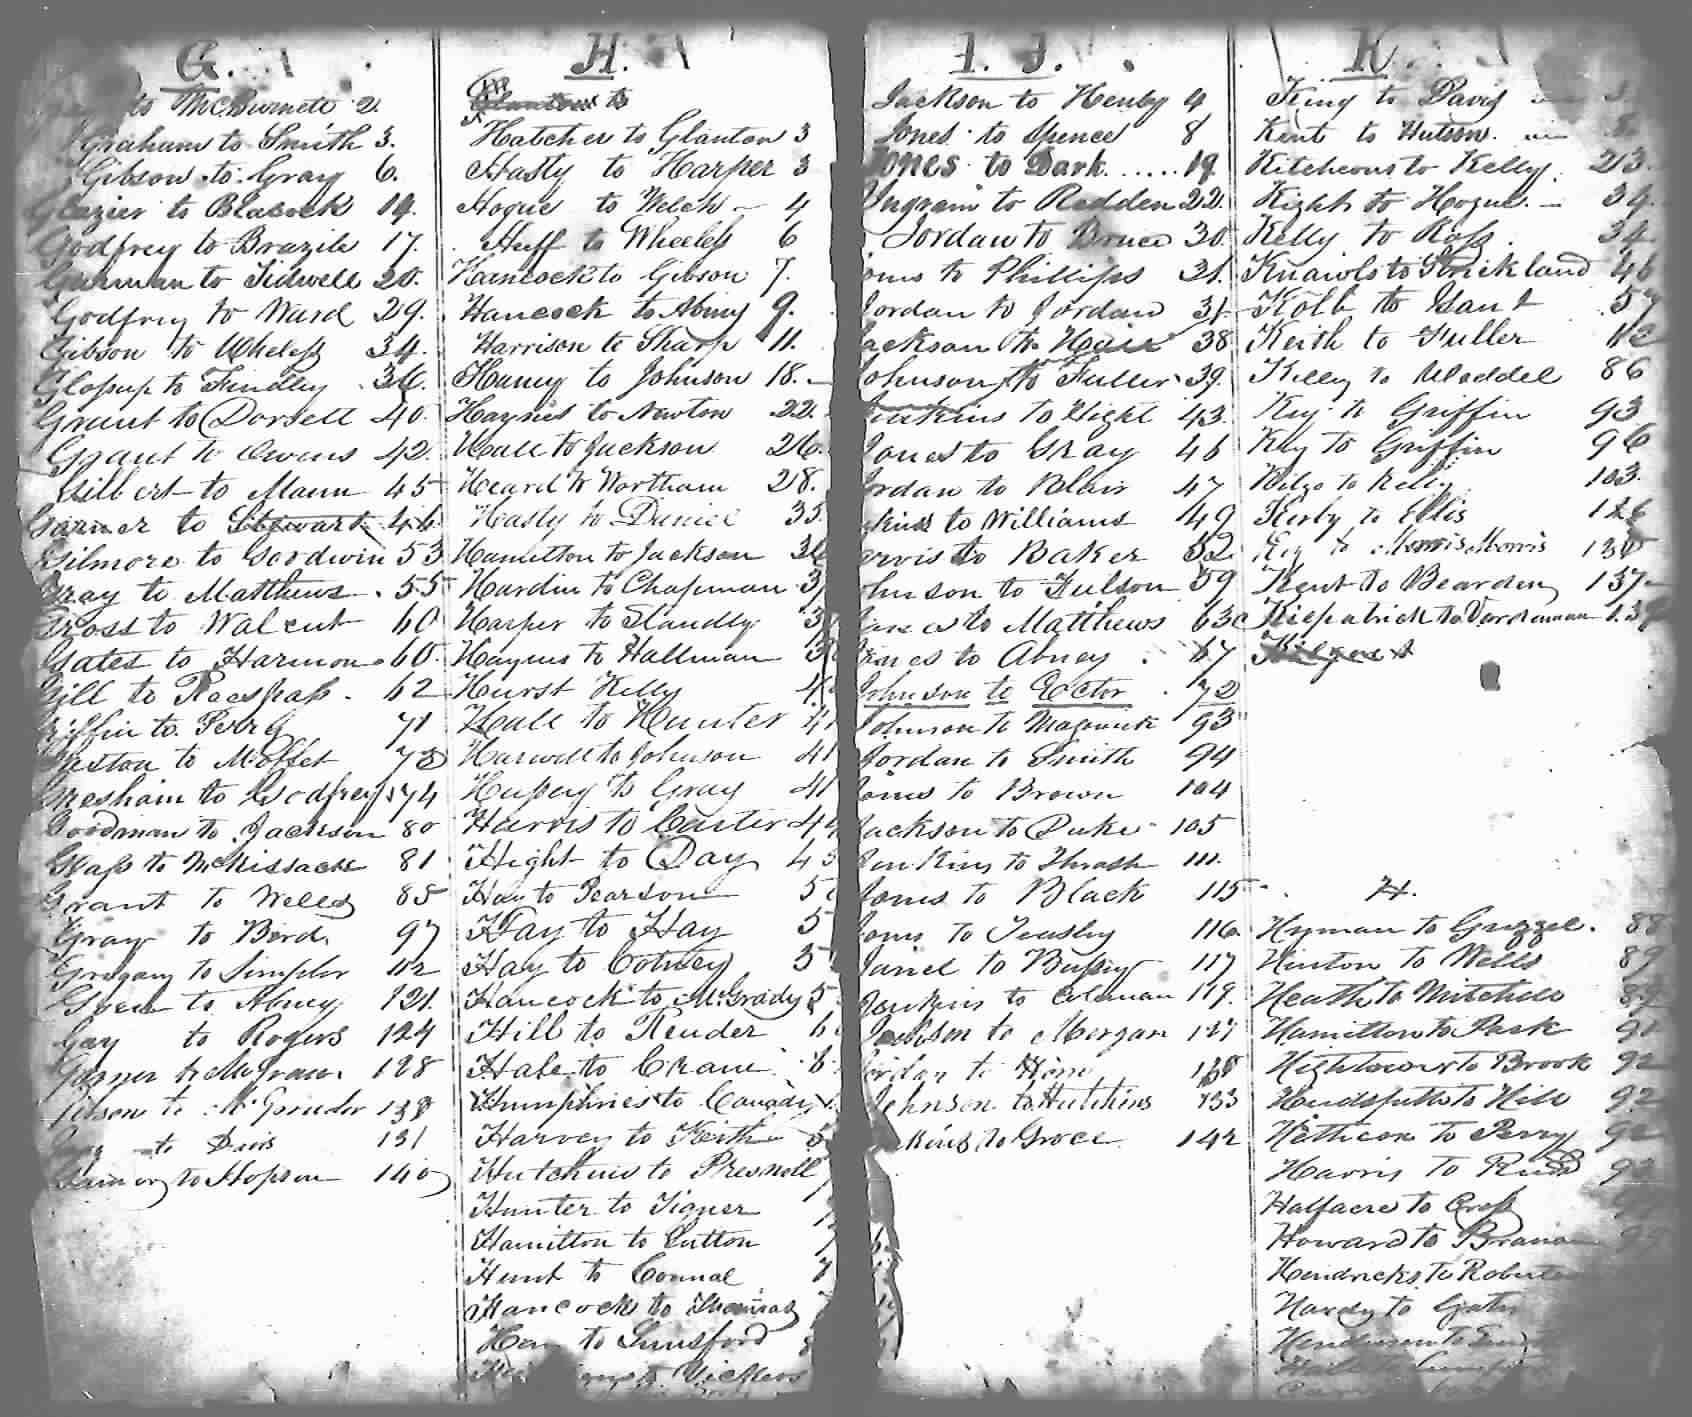 G.
to McBurnett 2.
Graham to Smith 3.
Gibson to Gray 6.
Glazier to Blalock 14.
Godfrey to Brazile 17.
to Tidwell 20.
Godfrey to Ward 29.
Gibson to Wheless 34.
to Findley 36.
Grant to Dorsett 40.
Grant to Owens 42.
Gilbert to Mann 45
Garner to Stewart 46
Gilmore to Goodwin 53
Gray to Matthews 55
Gross to Walcut 60
Gates to Harmon 60.
Gill to 62
Griffin to Perry 71
Gaston to Moffet 73
Gresham to Godfrey 74
Goodman to Jackson 80
Glass to McKissack 81
Grant to Wells 85
Gray to Bird. 97
Gregory to Simpler 112
to Abney 121.
Gay to Rogers 124
Garner to McGraw. 128
Gibson to McGruder 138
to Davis 131
to Hopson 140
H.
to
Hatcher to Glanton 3
Hasty to Harper 3
Hogue to Welch - 4
Huff to Wheeless 6
Hancock to Gibson 7.
Hancock to Abney 9.
Harrison to Sharp 11.
Haney to Johnson 18.
Haynes to Newton 22.
Heall to Jackson 26.
Heard to Wortham 28.
Heasly to Daniel 35
Hamilton to Jackson 36
Hardin to Chapman 3
Harper to Standly 3
Haynes to Hallman 3
Hurst Kelly 4
Heall to Hunter 41
Harwell to Johnson 41
Hussey to Gray 41
Harris to Carter 44
Hight to Day 45
Hay to Pearson 5
Hay to Hay 5
Hay to Cotney 5
Hancock to McGrady 5
Hill to Render 6
Hale to Crane 6
Humphries to Canady
Harvey to Keith
Hutchins to Presnell
Hunter to Tigner
Hamilton to Cutton 7
Hunt to Connal 7
Hancock to Thomas 7
to Lunsford 8
to Vickers
I. J.
Jackson to Henby 4
Jones to Spence 8
Jones to Dark......19
Ingram to Redden 22.
Jordan to Bruce 30.
Jones to Phillips 31.
Jordan to Jordan 31
Jackson to Hair 38
Johnson to Fuller 39.
Jenkins to Hight 43.
Jones to Gray 46
Jordan to Blair 47
to Williams 49
Jarvis to Baker 52
Johnson to Fulson 59
to Matthews 63
James to Abney 67
Johnson to Ector 72
Johnson to 93
Jordan to Smith 94
Jones to Brown 104
Jackson to Duke 105
Jenkins to Thrash 111.
Jones to Black 115
Jones to Teasley 116
to Bussey 117
Jenkins to Coleman 119.
Jackson to Morgan 127
Jordan to 130
Johnson to Hutchins 133
to Groce 142
K.
King to Davis
Kent to Hutson.
Kitchens to Kelly. 23.
Kight to Hogue. 34.
Kelly to Ross 34
to Strickland 46
Kolb to Gant 57
Keith to Fuller 112
Kelly to Waddel 86
Key to Griffin 93
Key to Griffin 96
to Kelly 103.
Kerby to Ellis 126
Key to Morris 130
Kent to Bearden 137
Kilpatrick to Vardeman 139
H.
Hyman to Grizzel. 88
Hinton to Wells 89
Heath to Mitchell 89
Hamilton to Park 91
Hightower to Brook 92
to Hill 92
to Perry 92
Harris to 92
Halfacre to Cross
Howard to
Hendricks to
Hardy to
Henderson to